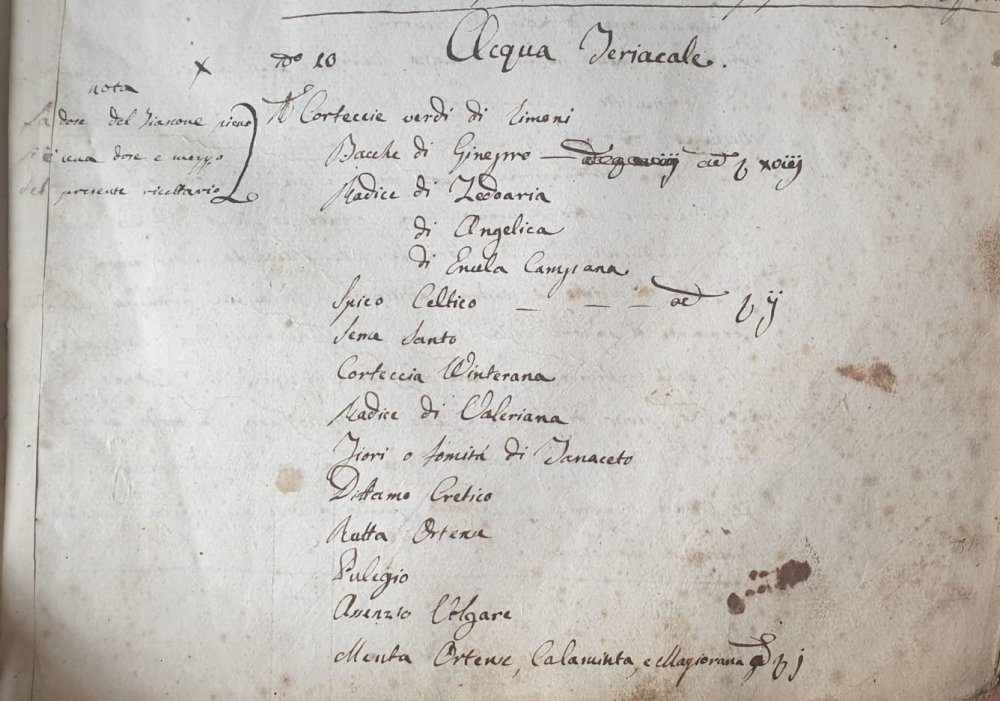 N.o 10 Acqua Teriacale.
nota
La dose del Fiascone pieno
è una dose e mezzo
del presente ricettario
Corteccie verdi di Limoni
Bacche di Ginepro — xviiij
Radice di Zedoaria
di Angelica
di Enula Campana
Spico Celtico — — — ij
Seme Santo
Corteccia Winterana
Radice di Valeriana
Fiori o Somitá di Tanaceto
Dittamo Cretico
Rutta Ortense
Pulegio
Assenzio Volgare
Menta Ortense, Calaminta, e Magiorana j